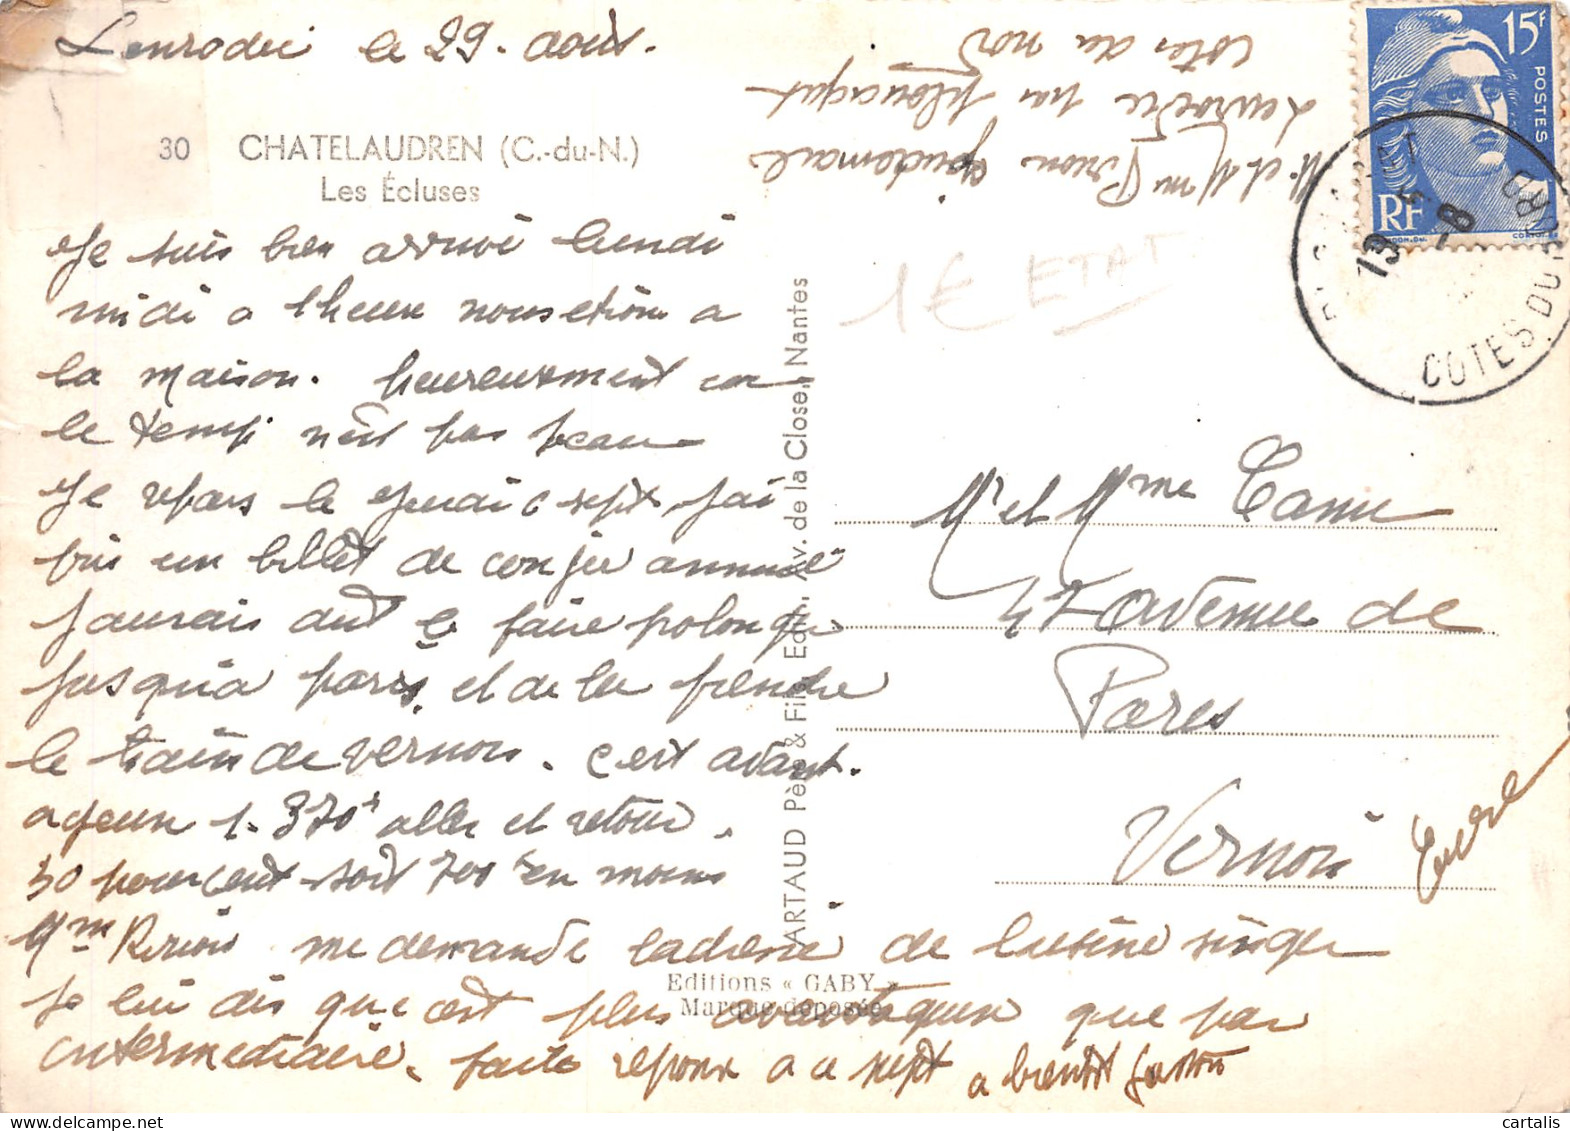 le 29. août.
30 CHATELAUDREN (C.-du-N.)
Les Écluses
Mr et Mme Perion
par plouagat
Cotes du nord
1€ ETAT
15F
POSTES
RF
19
-8
COTES DU NORD
je suis bien arrivé lundi
midi a 1 heure nous etions a
la maison. heureusement car
le temps n'est pas beau
je repars le jeudi 6 sept j'ai
pris un billet de congé annuel
j'aurais dut le faire polonger
jusqu'a paris, et de la prendre
le train de vernon. c'est avant.
ageux 1.370f aller et retour.
30 pour cent soit 700 en moins
Mme me demande l'adresse de l'usine singer
je lui dis que c'est plus avantageux que par
intermediaire. faite reponse a ce sujet a bientot gaston
ARTAUD Père & Fils, Edit., Av. de la Close, Nantes
Editions « GABY »
Marque déposée
Mr et Mme
47 avenue de
Paris
Vernon Eure
cartalis